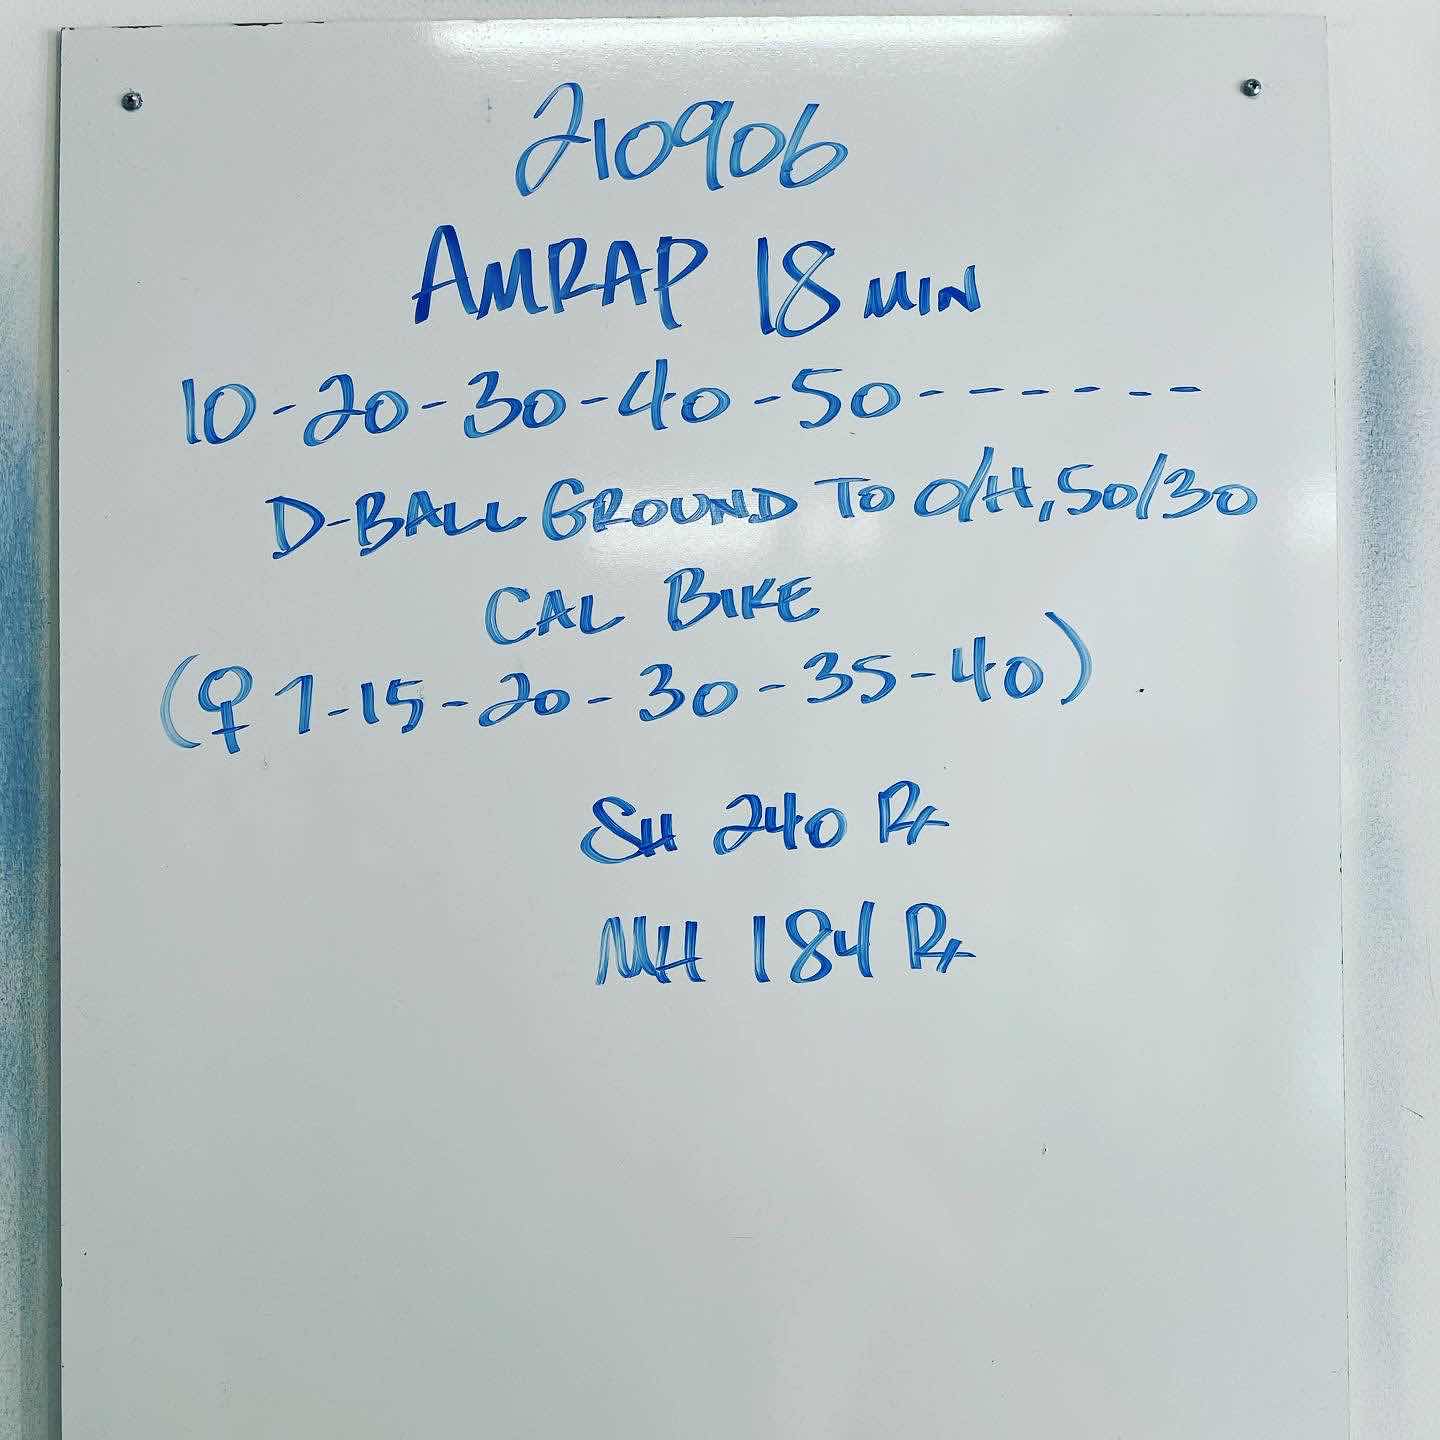 210906
AMRAP 18 MIN
10-20-30-40-50------
D-BALL GROUND TO O/H, 50/30
CAL BIKE
(♀ 7-15-20-30-35-40)
SH 240 Rx
MH 184 Rx